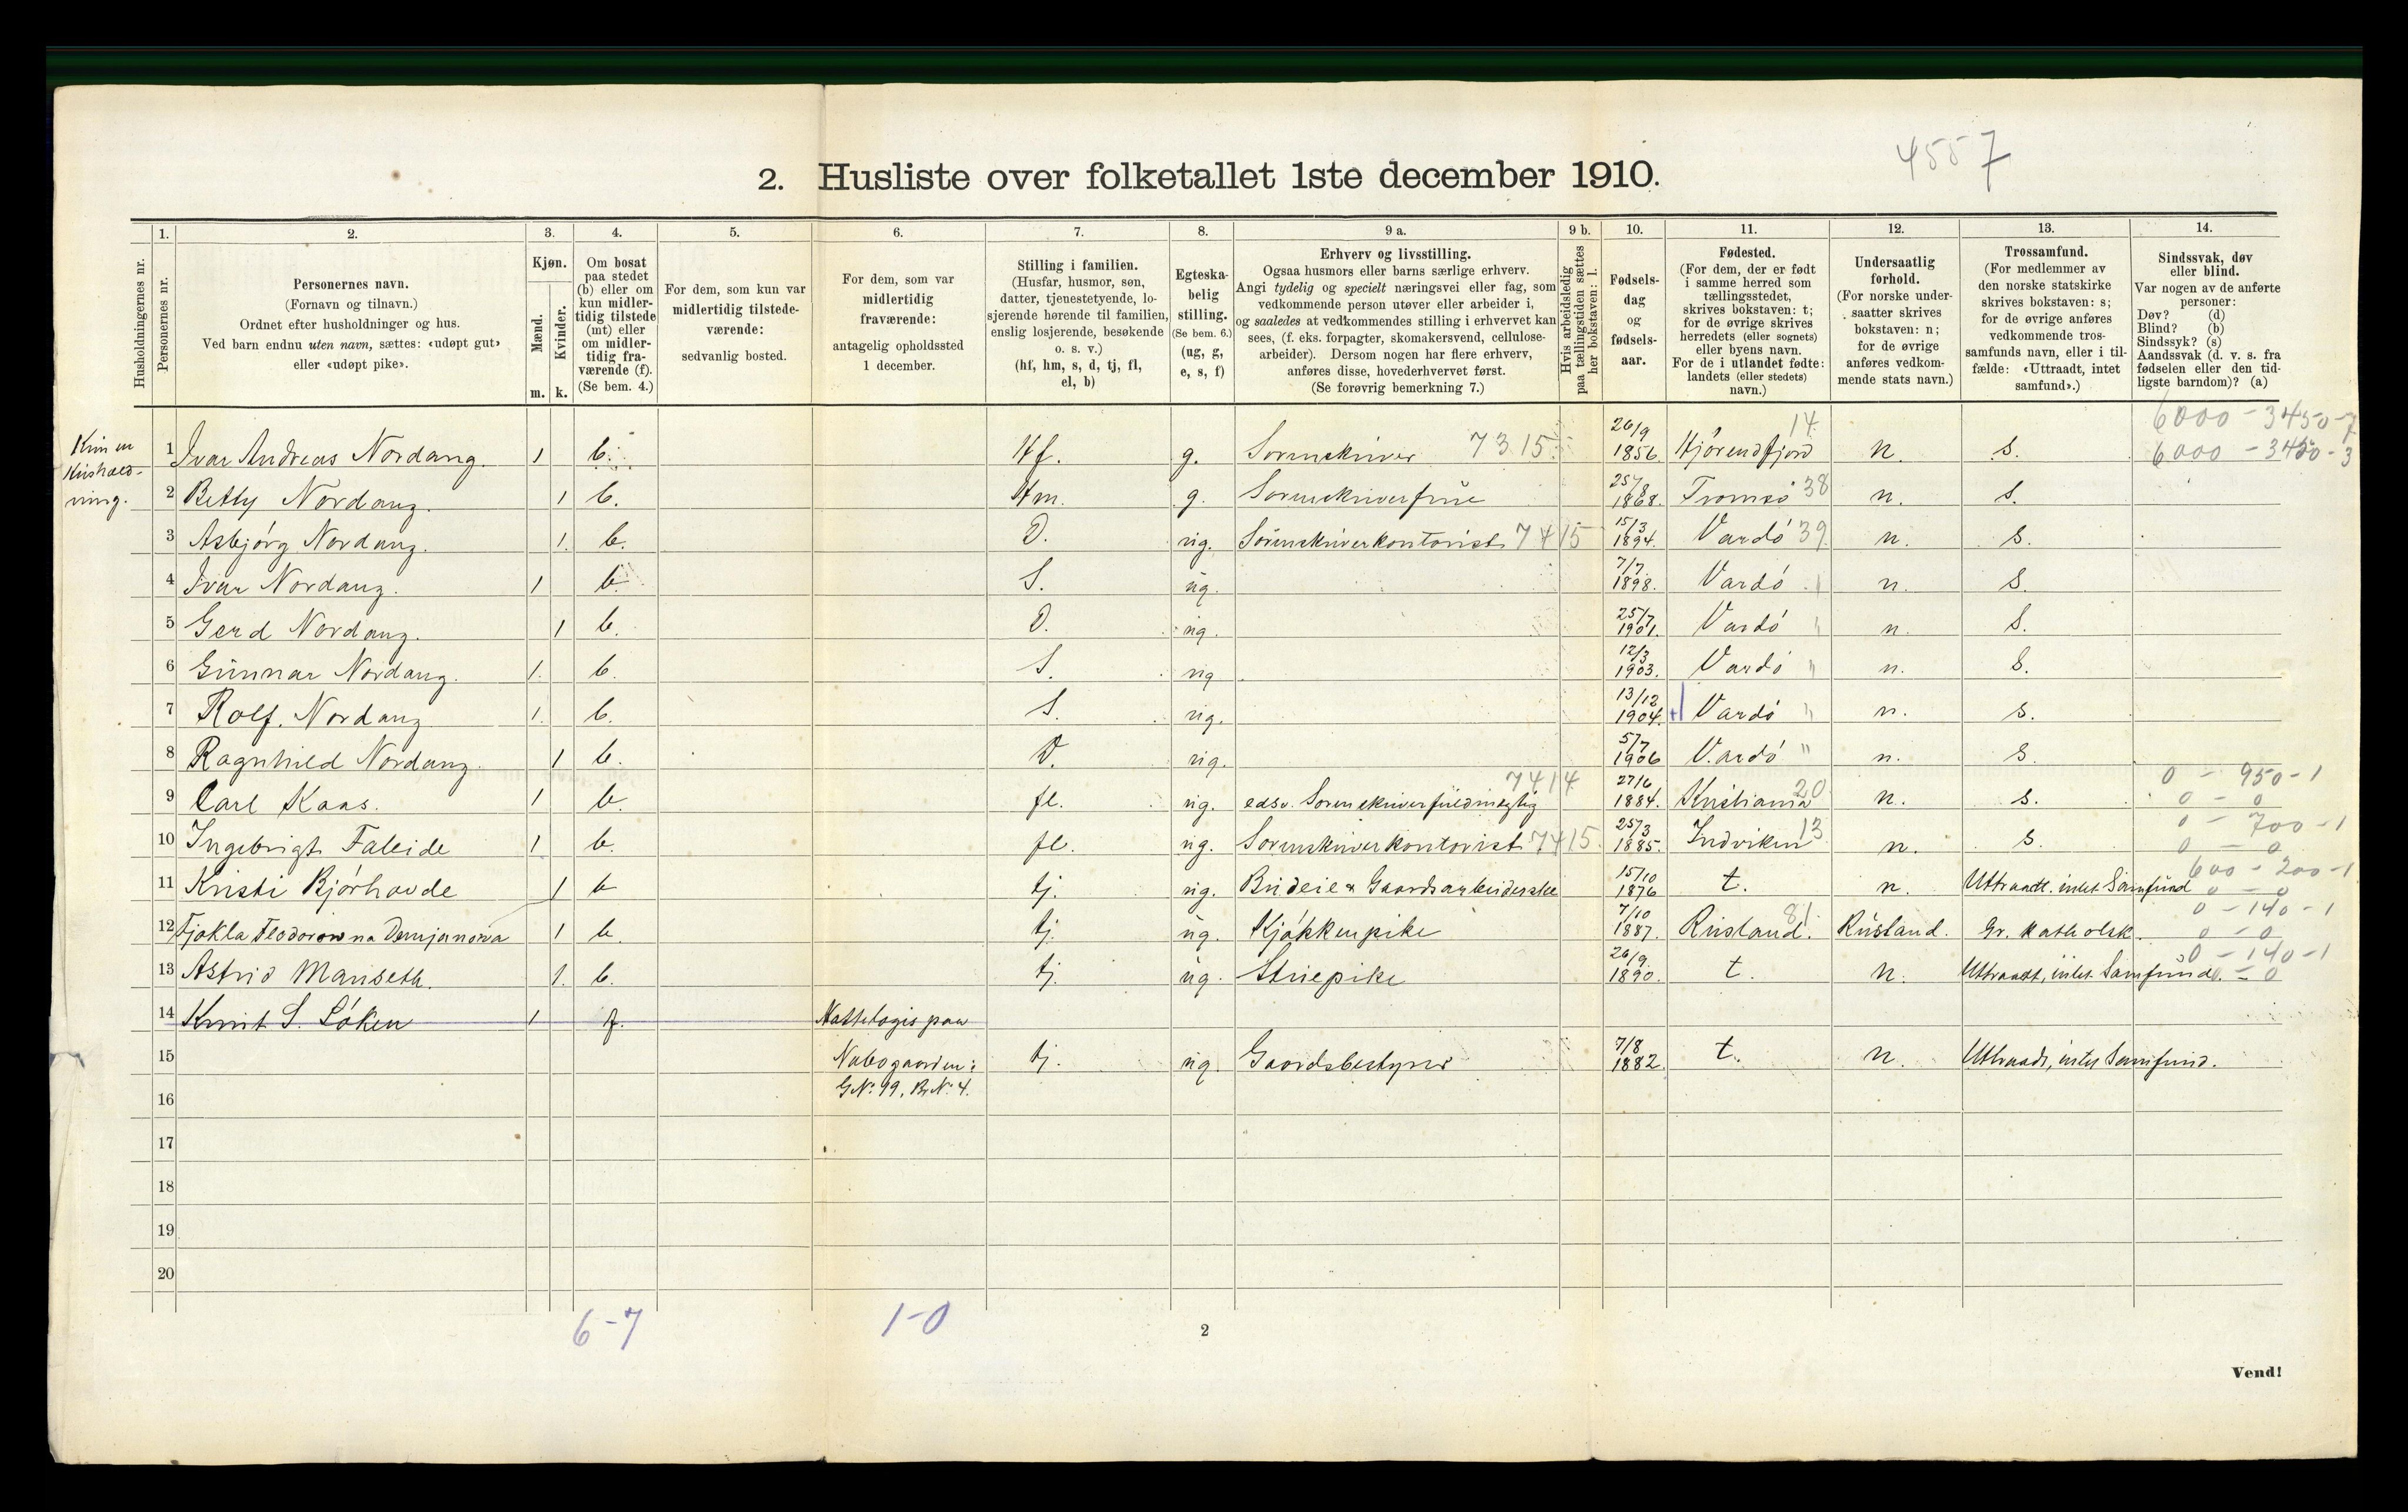 4557
2. Husliste over folketallet 1ste december 1910.
Husholdningernes nr.
1. Personernes nr.
2. Personernes navn.
(Fornavn og tilnavn.)
Ordnet efter husholdninger og hus.
Ved barn endnu uten navn, sættes: «udøpt gut»
eller «udøpt pike».
3. Kjøn.
Mænd. Kvinder.
m. k.
4. Om bosat
paa stedet
(b) eller om
kun midler-
tidig tilstede
(mt) eller
om midler-
tidig fra-
værende (f).
(Se bem. 4.)
5. For dem, som kun var
midlertidig tilstede-
værende:
sedvanlig bosted.
6. For dem, som var
midlertidig
fraværende:
antagelig opholdssted
1 december.
7. Stilling i familien.
(Husfar, husmor, søn,
datter, tjenestetyende, lo-
sjerende hørende til familien,
enslig losjerende, besøkende
o. s. v.)
(hf, hm, s, d, tj, fl,
el, b)
8. Egteska-
belig
stilling.
(Se bem. 6.)
(ug, g,
e, s, f)
9 a. Erhverv og livsstilling.
Ogsaa husmors eller barns særlige erhverv.
Angi tydelig og specielt næringsvei eller fag, som
vedkommende person utøver eller arbeider i,
og saaledes at vedkommendes stilling i erhvervet kan
sees, (f. eks. forpagter, skomakersvend, cellulose-
arbeider). Dersom nogen har flere erhverv,
anføres disse, hovederhvervet først.
(Se forøvrig bemerkning 7.)
9 b. Hvis arbeidsledig
paa tællingstiden sættes
her bokstaven: l.
10. Fødsels-
dag
og
fødsels-
aar.
11. Fødested.
(For dem, der er født
i samme herred som
tællingsstedet,
skrives bokstaven: t;
for de øvrige skrives
herredets (eller sognets)
eller byens navn.
For de i utlandet fødte:
landets (eller stedets)
navn.)
12. Undersaatlig
forhold.
(For norske under-
saatter skrives
bokstaven: n;
for de øvrige
anføres vedkom-
mende stats navn.)
13. Trossamfund.
(For medlemmer av
den norske statskirke
skrives bokstaven: s;
for de øvrige anføres
vedkommende tros-
samfunds navn, eller i til-
fælde: «Uttraadt, intet
samfund».)
14. Sindssvak, døv
eller blind.
Var nogen av de anførte
personer:
Døv? (d)
Blind? (b)
Sindssyk? (s)
Aandssvak (d. v. s. fra
fødselen eller den tid-
ligste barndom)? (a)
Kun en
Hushold-
ning.
6000 - 3450-7
1 Ivar Andreas Nordang. 1 b. Hf. g. Sorenskriver 7315 26/9 1856. Hjörendfjord 14 n. s. 6000 - 3450-3
2 Betty Nordang. 1 b. Hm. g. Sorenskriverfrue 25/8 1868. Tromsö 38 n. s.
3 Asbjörg Nordang. 1. b. D. ug. Sorenskriverkontorist 7415 15/3 1894. Vardö 39 n. s.
4 Ivar Nordang. 1 b. S. ug. 7/7 1898. Vardö " n. s.
5 Gerd Nordang. 1 b. D. ug. 25/7 1901. Vardö " n. s.
6 Gunnar Nordang. 1. b. S. ug 12/3 1903. Vardö " n. s.
7 Rolf. Nordang 1. b. S. ug. 13/12 1904. Vardö " n. s.
8 Ragnhild Nordang. 1 b. D. ug. 5/7 1906 Vardö " n. s.
9 Carl Kaas. 1 b. fl. ug. edsv. Sorenskriverfuldmægtig 7414 27/6 1884. Kristiania 20 n. s. 0 - 950-1 0 - 0
10 Ingebrigt Faleide 1 b. fl. ug. Sorenskriverkontorist 7415 25/3 1885. Indviken 13 n. s. 0 - 700-1 0 - 0
11 Kristi Bjørhovde 1 b tj. ug. Budeie & Gaardsarbeiderske 15/10 1876 t. n. Uttraadt. intet Samfund 600 - 200-1 0 - 0
12 Fjokla Feodorowna Demjanowa 1 b. tj. ug. Kjökkenpike 7/10 1887. Rusland. 81 Rusland. Gr. katholsk. 0 - 140-1 0 - 0
13 Astrid Mariseth. 1. b. tj. ug. Stuepike 26/9 1890. t. n. Uttraadt, intet Samfund. 0 - 140-1 0 - 0
14 Knut S. Löken 1 f. Natteлogis paa
15 Nabogaarden: tj. ug. Gaardsbestyrer 7/8 1882. t. n. Uttraadt, intet Samfund.
16 G.N. 99, B.N. 4.
17
18
19
20
6-7 1-0
2
Vend!